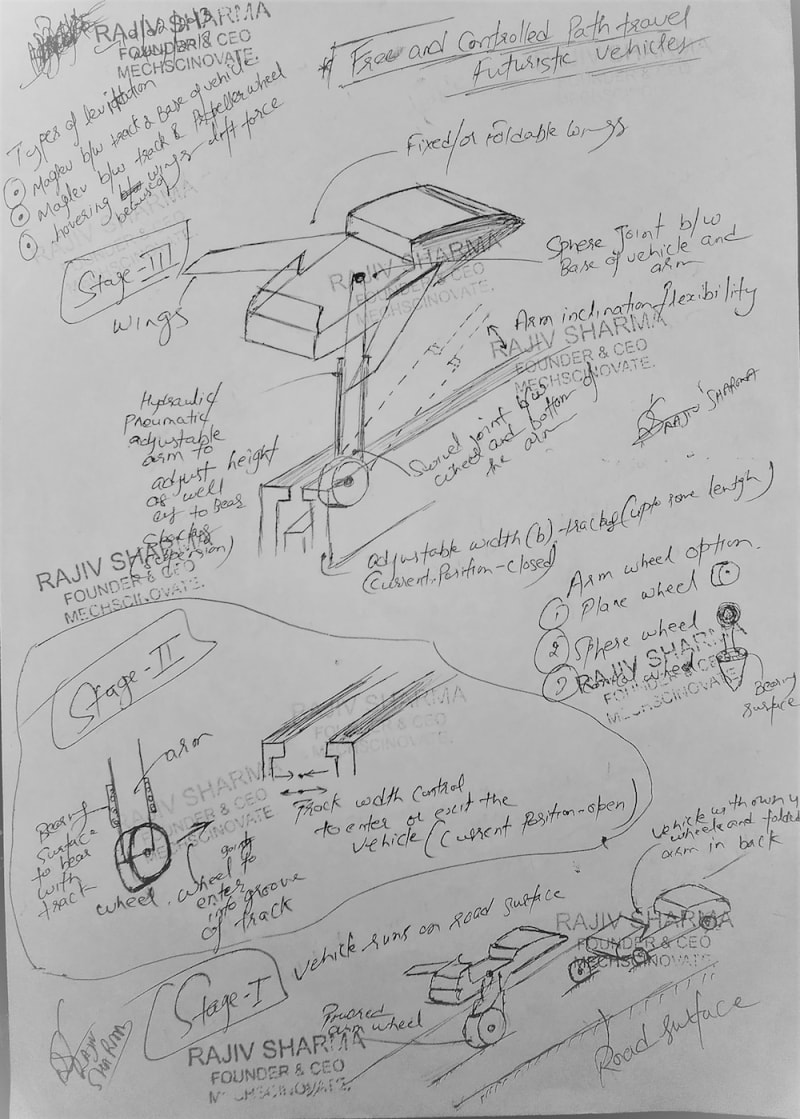 RAJIV SHARMA
FOUNDER & CEO
MECHSCINOVATE.
* Free and Controlled Path travel
futuristic vehicles
Types of levitation
① Maglev b/w track & Base of vehicle.
② Maglev b/w track & Propeller wheel
③ hovering wings drift force
because of
Fixed/or Foldable wings
Stage-III
wings
RAJIV SHARMA
FOUNDER & CEO
MECHSCINOVATE.
Sphere Joint b/w
Base of vehicle and
arm
Arm inclination flexibility
RAJIV SHARMA
FOUNDER & CEO
MECHSCINOVATE.
Swivel Joint b/w
wheel and bottom of
the arm
RAJIV SHARMA
Hydraulic/
Pneumatic
adjustable
arm to
adjust height
as well
as to bear
Shocks
RAJIV SHARMA
FOUNDER & CEO
MECHSCINOVATE.
adjustable width (b)-track (upto some length)
(Current Position-Closed)
Arm wheel option.
① Plane wheel
② Sphere wheel
wheel
RAJIV SHARMA
FOUNDER & CEO
MECHSCINOVATE
Bearing
Surface
Stage-II
arm
Bearing
Surface
to bear
with
track
wheel
RAJIV SHARMA
FOUNDER & CEO
MECHSCINOVATE
wheel going to
enter
into groove
of track
RAJIV SHARMA
FOUNDER & CEO
MECHSCINOVATE
Track width Control
to enter or exit the
vehicle (Current Position-open)
Stage-I
Vehicle runs on road surface
Vehicle with own 4
wheels and folded
arm in back
RAJIV SHARMA
FOUNDER & CEO
MECHSCINOVATE.
Powered
arm wheel
Road surface
RAJIV
SHARMA
RAJIV SHARMA
FOUNDER & CEO
MECHSCINOVATE.